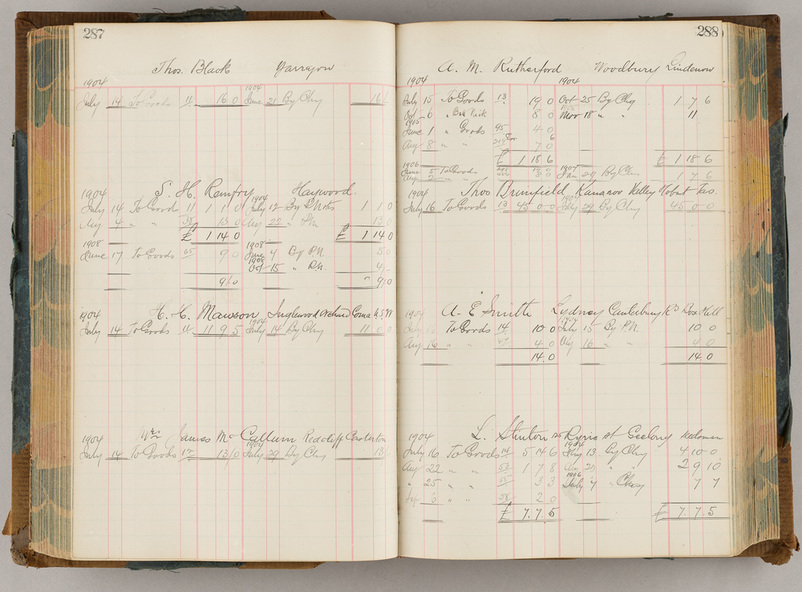 287
Thos. Black Yarragon
1904 1904
July 14 To Goods 11 16 0 June 21 By Chq 16
1904 S. H. Remfry Haywood
July 14 To Goods 11 1 1 0 July 12 By P Notes 1 1 0
Aug 4 " " 13 0 Aug 22 " P.N. 13 0
£ 1 14 0 £ 1 14 0
1908 1908
June 17 To Goods 9 0 June 4 By P.N. 5 0
Oct 15 " P.N. 4
9/0 " 9/0
1904 H. H. Mawson Inglewood Orchard N.S.W
July 14 To Goods 11 11 9 5 July 14 By Chq 11
1904 Mrs James McCallum Redcliff
July 14 To Goods 12 13/0 July 20 By Chq 13/
288
A. M. Rutherford Woodbury Lindenow
1904 1904
July 15 To Goods 13 19 0 Oct 25 By Chq 1 7 6
Oct 6 " 8 0 Nov 18 " " 11
June 1 " Goods 45 4 0
Aug 8 " " 7 0
£ 1 18 6 £ 1 18 6
1906
June 5 To Goods Jan 29 By Chq 1 7 6
1904 Thos Brumfield Kangaroo Valley Hobart Tas.
July 16 To Goods 13 45 0 0 July 29 By Chq 45 0 0
1904 A. E. Smith Lydney Canterbury Rd Box Hill
To Goods 14 10 0 July 15 By P.N. 10 0
Aug 16 " " 4 0 Aug 16 " " 4 0
14 0 14 0
1904 L. Stinton Ryrie St Geelong
July 16 To Goods 14 5 14 6 Aug 13 By Chq 4 10 0
Aug 22 " " 1 7 8 " 2 9 10
" 25 " " 3 3 July 4 " Chq 7 7
6 " " 2 0
£ 7. 7. 5 £ 7. 7. 5